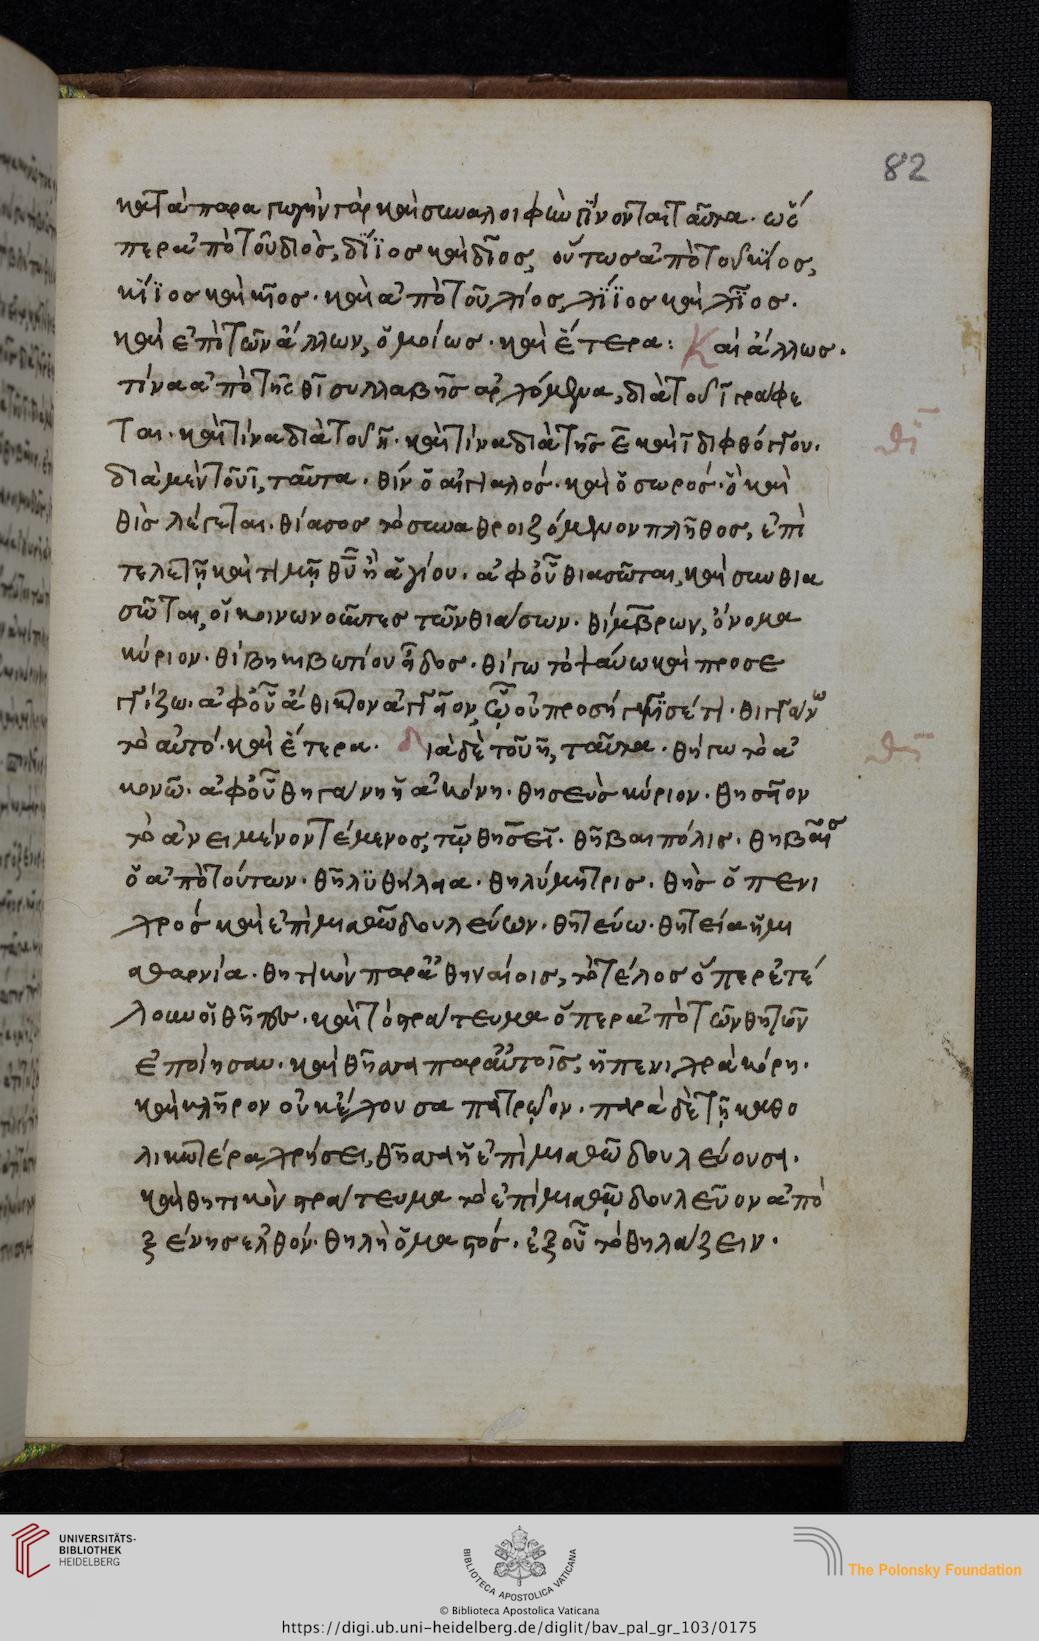 82
κατὰ παραγωγὴν γὰρ καὶ συναλοιφὴν γίνονται ταῦτα. ὥς
περ ἀπὸ τοῦ διὸς, δίϊος καὶ δῖος, οὕτως ἀπὸ τοῦ κίος,
κίϊος καὶ κῖος. καὶ ἀπὸ τοῦ χίος, χίϊος καὶ χῖος.
καὶ ἐπὶ τῶν ἄλλων, ὁμοίως. καὶ ἕτερα: Καὶ ἄλλως.
τίνα ἀπὸ τῆς θι συλλαβῆς ἀρχόμενα, διὰ τοῦ ῑ γράφε
ται. καὶ τίνα διὰ τοῦ η. καὶ τίνα διὰ τῆς ε καὶ ῑ διφθόγγου.
διὰ μὲν τοῦ ῑ, ταῦτα. θίν ὁ αἰγιαλός. καὶ ὁ σωρός. ὃ καὶ
θὶς λέγεται. θίασος τὸ συναθροιζόμενον πλῆθος, ἐπὶ
τελετῇ καὶ τιμῇ θῡ ἢ ἁγίου. ἀφ' οὗ θιασῶται, καὶ συνθια
σῶται, οἱ κοινωνοῦντες τῶν θιάσων. θίμβρων, ὄνομα
κύριον. θίβη κιβωτίου εἶδος. θίγω τὸ ψαύω καὶ προσε
γγίζω. ἀφ' οὗ ἄθικτον ἀγγεῖον, ᾧ οὐ προσήγγισέ τι. θιγγάνω
τὸ αὐτό. καὶ ἕτερα. διὰ δὲ τοῦ η, ταῦτα. θήγω τὸ ἀ
κονῶ. ἀφ' οὗ θηγάνη ἡ ἀκόνη. θησεὺς κύριον. θησεῖον
τὸ ἀνειμένον τέμενος, τῷ θησεῖ. θῆβαι πόλις. θηβαῖος
ὁ ἀπὸ τούτων. θῆλυ θήλεια. θηλύμητρις. θὴς ὁ πενι
χρός καὶ ἐπὶ μισθῶ δουλεύων. θητεύω. θητεία ἡ μι
σθαρνία. θητικὸν παρ' ἀθηναίοις, τὸ τέλος ὅπερ ἐτέ
λουν οἱ θῆτες. καὶ τὸ στράτευμα ὅπερ ἀπὸ τῶν θητῶν
ἐποίησαν. καὶ θῆσσα παρ' αὐτοῖς, ἡ πενιχρὰ κόρη.
καὶ κλῆρον οὐκ ἔχουσα πατρῷον. παρὰ δὲ τῇ καθο
λικωτέρα χρήσει, θῆσσα ἡ ἐπὶ μισθῶ δουλεύουσα.
καὶ θητικὸν στράτευμα τὸ ἐπὶ μισθῷ δουλεῦον ἀπὸ
ξένης ἐλθόν. θηλὴ ὁ μαστός. ἐξ οὗ τὸ θηλάζειν.
θῑ
θη
UNIVERSITÄTS-
BIBLIOTHEK
HEIDELBERG
BIBLIOTECA APOSTOLICA VATICANA
The Polonsky Foundation
© Biblioteca Apostolica Vaticana
https://digi.ub.uni-heidelberg.de/diglit/bav_pal_gr_103/0175